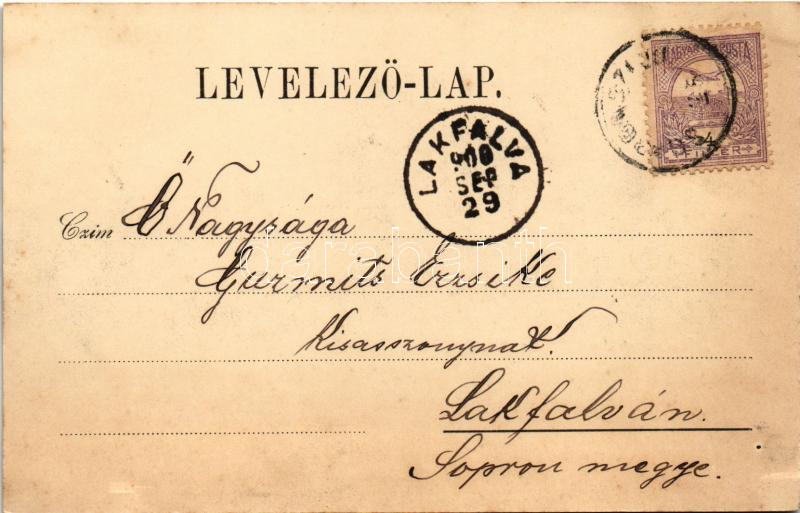 LEVELEZŐ-LAP.
MAGYAR POSTA
FILLÉR
LAKFALVA
900
SEP
29
Czim Ő Nagysága
Gurmits Erzsike
Kisasszonynak.
Lakfalván.
Sopron megye.
darabanth